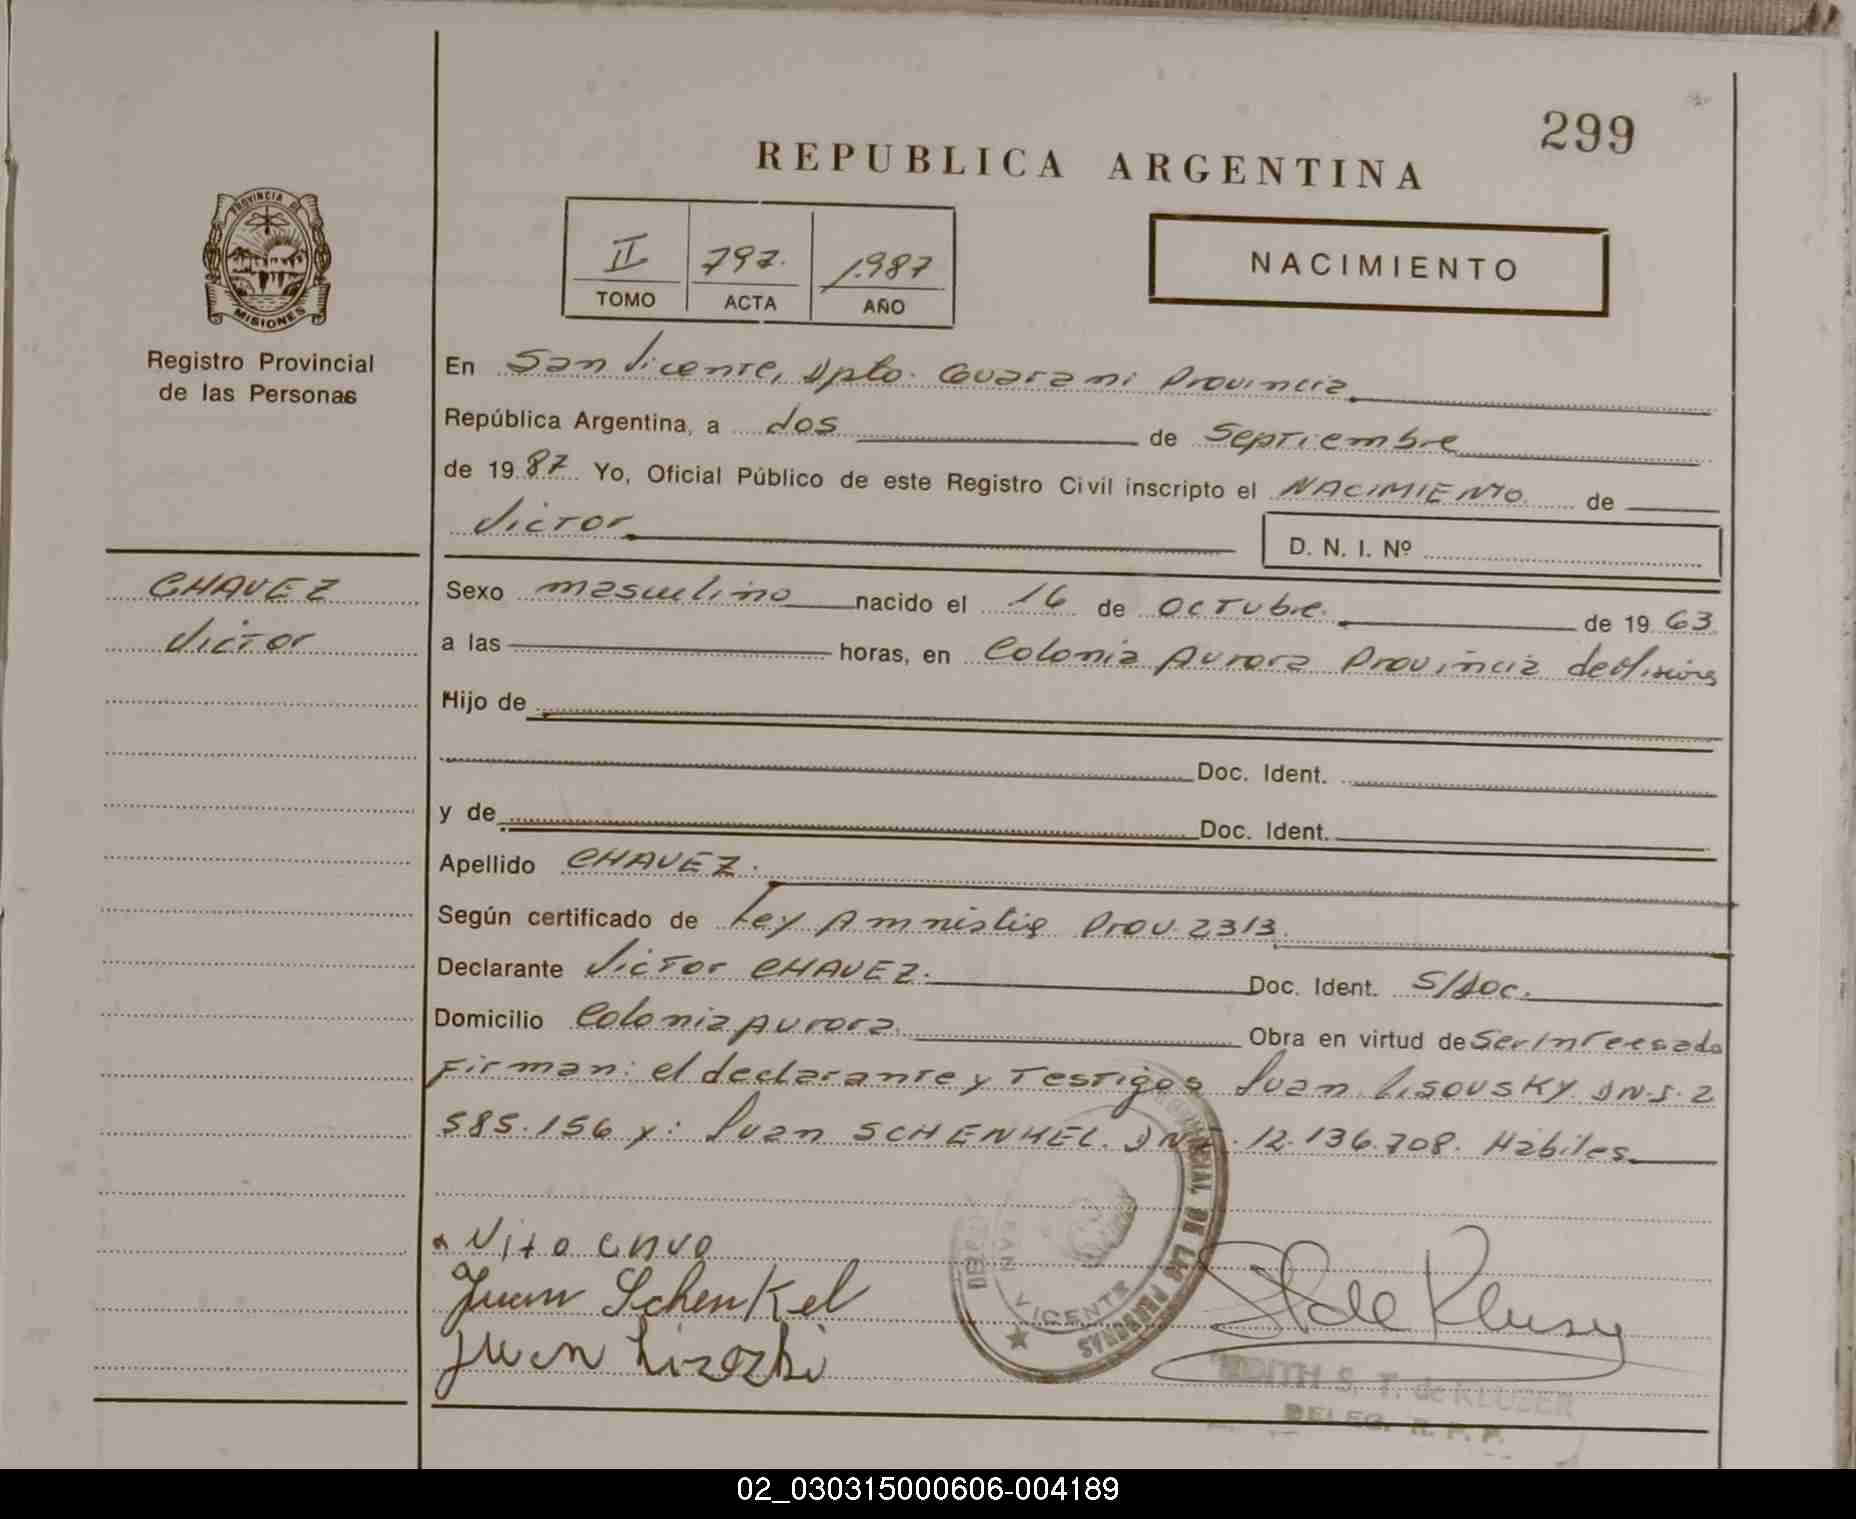 299
REPUBLICA ARGENTINA
PROVINCIA DE
MISIONES
Registro Provincial
de las Personas
II 797. 1.987
TOMO ACTA AÑO
NACIMIENTO
En San Vicente, Dpto. Guarani Provincia
República Argentina, a dos de Septiembre
de 1987 Yo, Oficial Público de este Registro Civil inscripto el NACIMIENTO de
Victor
D. N. I. Nº
CHAVEZ
Victor
Sexo masculino nacido el 16 de octubre de 1963
a las horas, en Colonia Aurora Provincia de Misiones
Hijo de
Doc. Ident.
y de Doc. Ident.
Apellido CHAVEZ.
Según certificado de Ley Amnistia Prov. 2313.
Declarante Victor CHAVEZ. Doc. Ident. S/doc.
Domicilio Colonia Aurora Obra en virtud de Ser Interesado
Firman: el declarante y Testigos Juan Lisousky. DN.I. 2
585.156 y: Juan SCHENKEL. DN.I. 12.136.708. Habiles
Juan Schenkel
Juan
DE LAS PERSONAS
VICENTE
EDITH S. T. de KLUSER
DELEG. R. P. P.
02_030315000606-004189